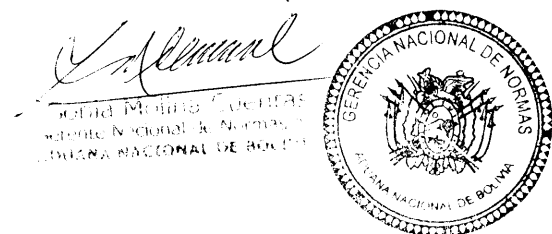 Sonia Molina Cuentas
Gerente Nacional de Normas
ADUANA NACIONAL DE BOLIVIA
GERENCIA NACIONAL DE NORMAS
ADUANA NACIONAL DE BOLIVIA